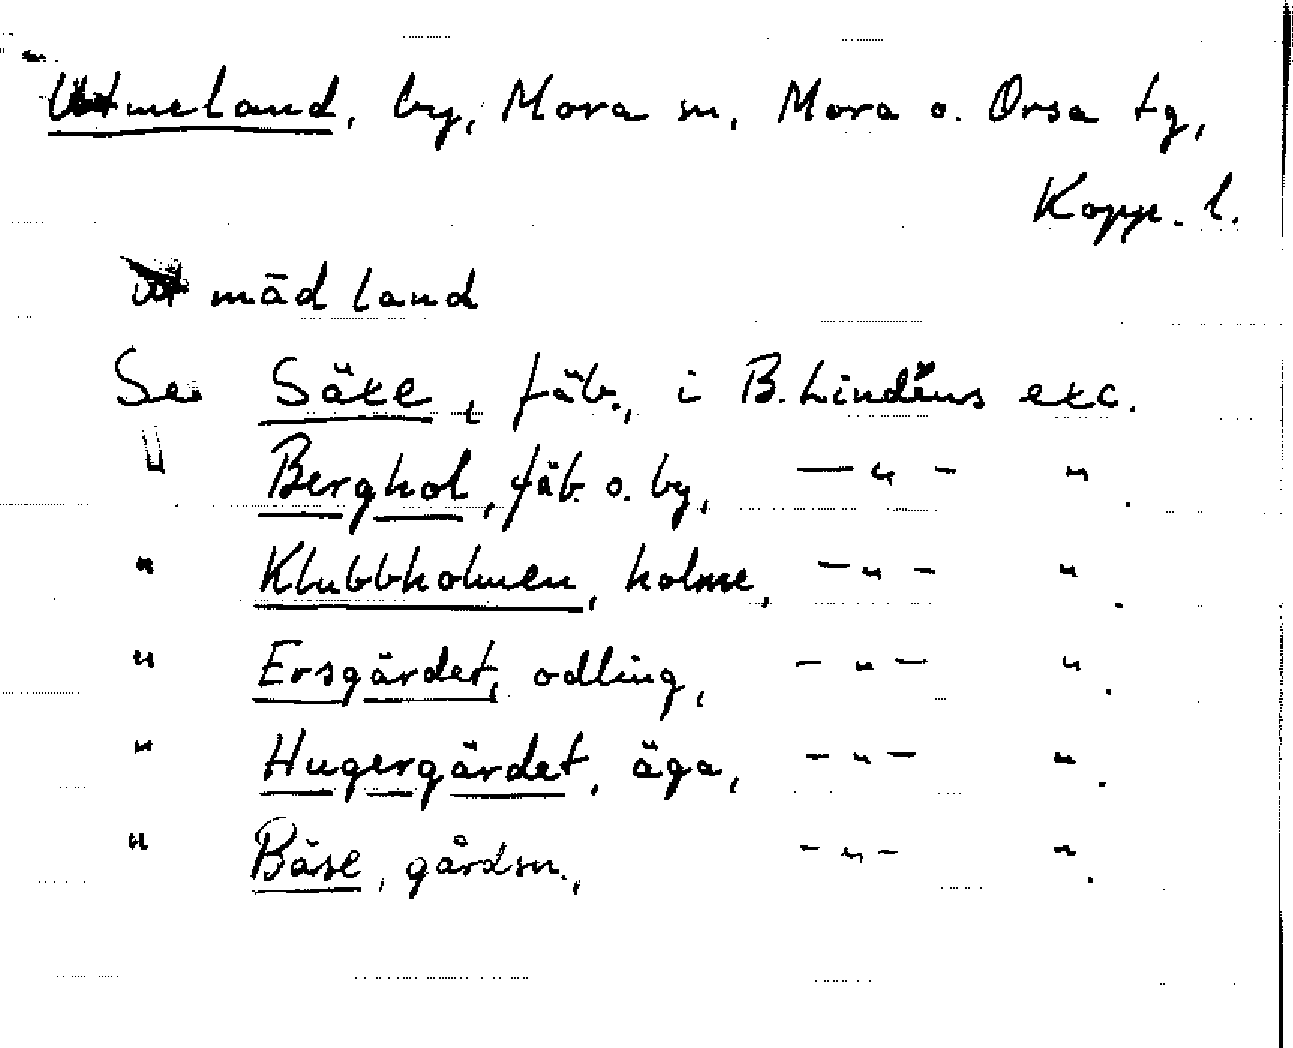 Utmeland, by, Mora sn, Mora o. Orsa tg,
Kopp. l.
mäd land
Se Säxe, fäb., i B. Lindéns exc.
" Berghol, fäb. o. by, —"— ".
" Klubbholmen, holme, —"— ".
" Ersgärdet, odling, —"— ".
" Hugergärdet, äga, —"— ".
" Bäse, gårdsn., —"— ".